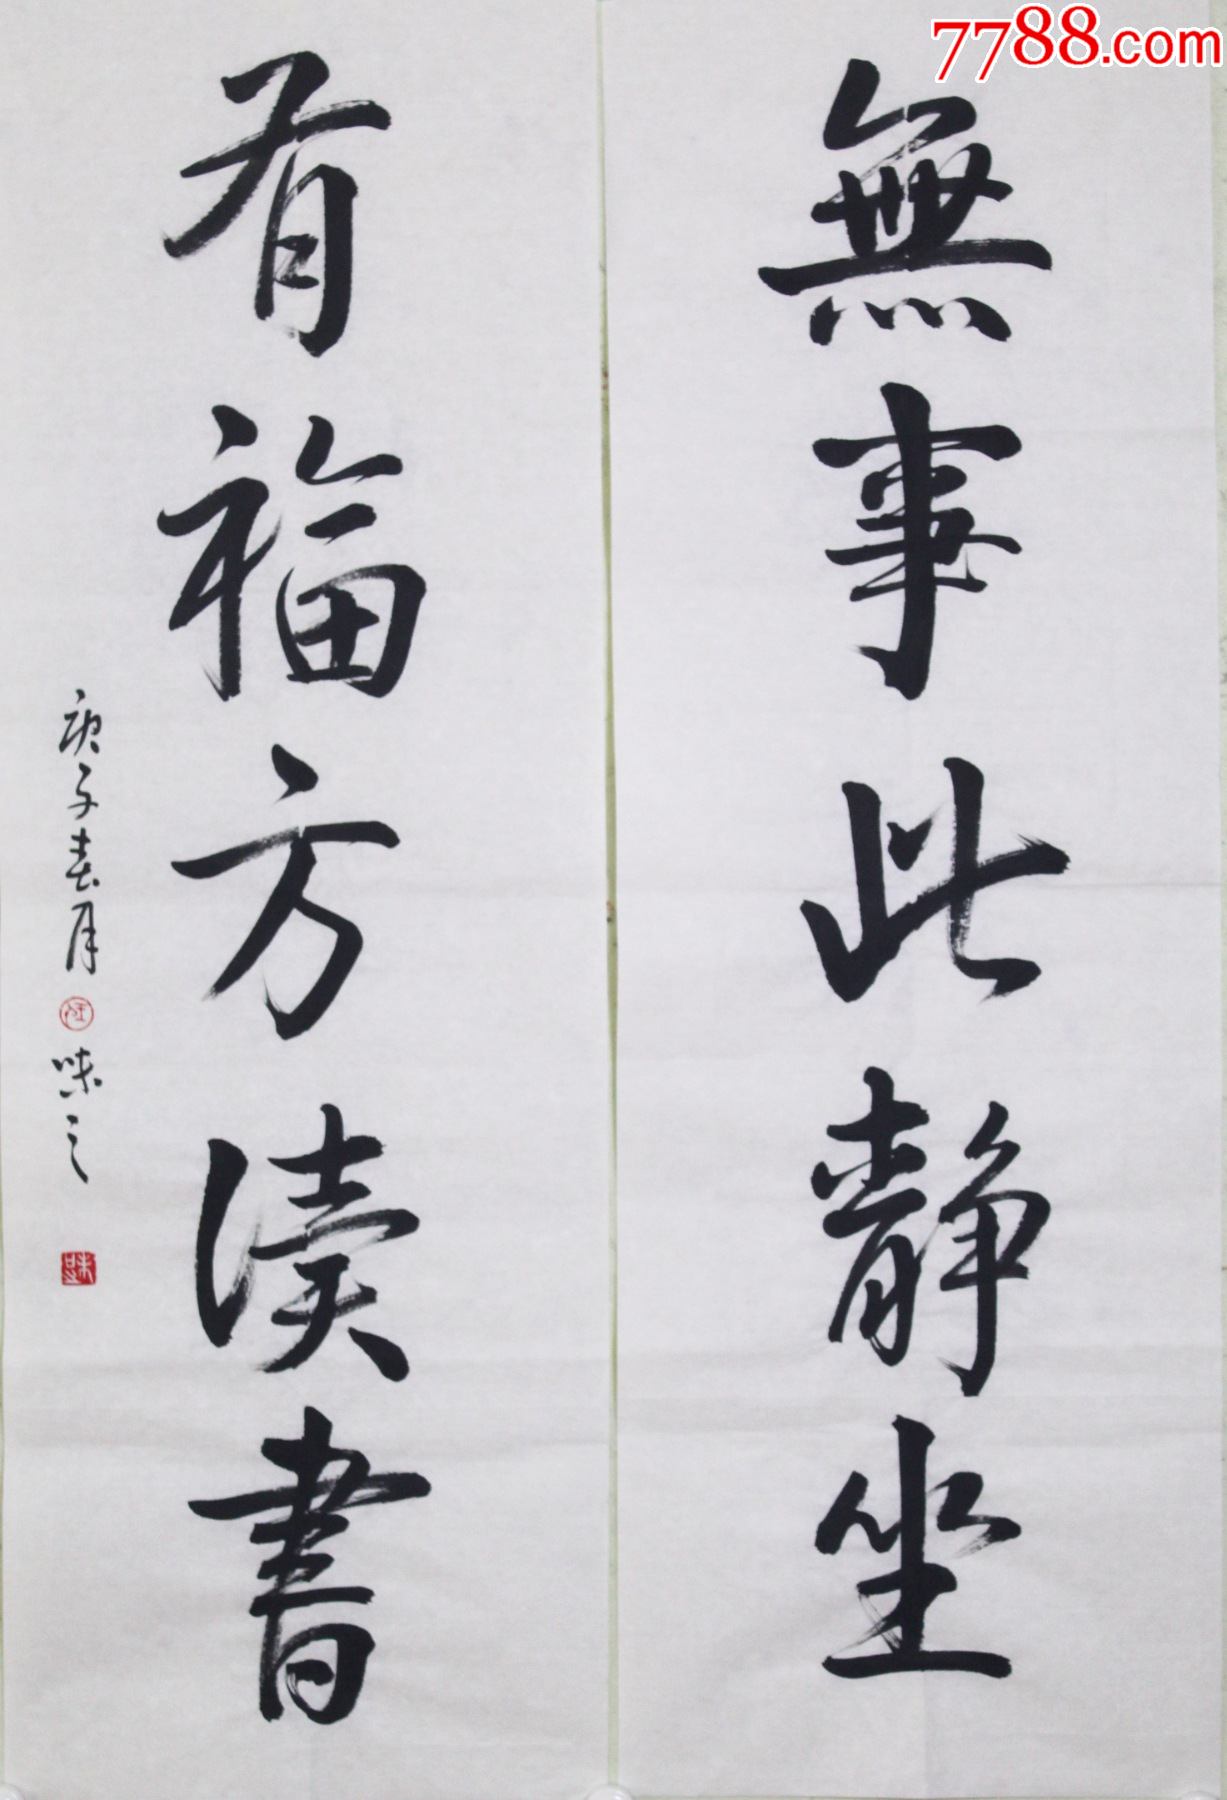 7788.com
無事此静坐
有福方读書
庚子春月
味之